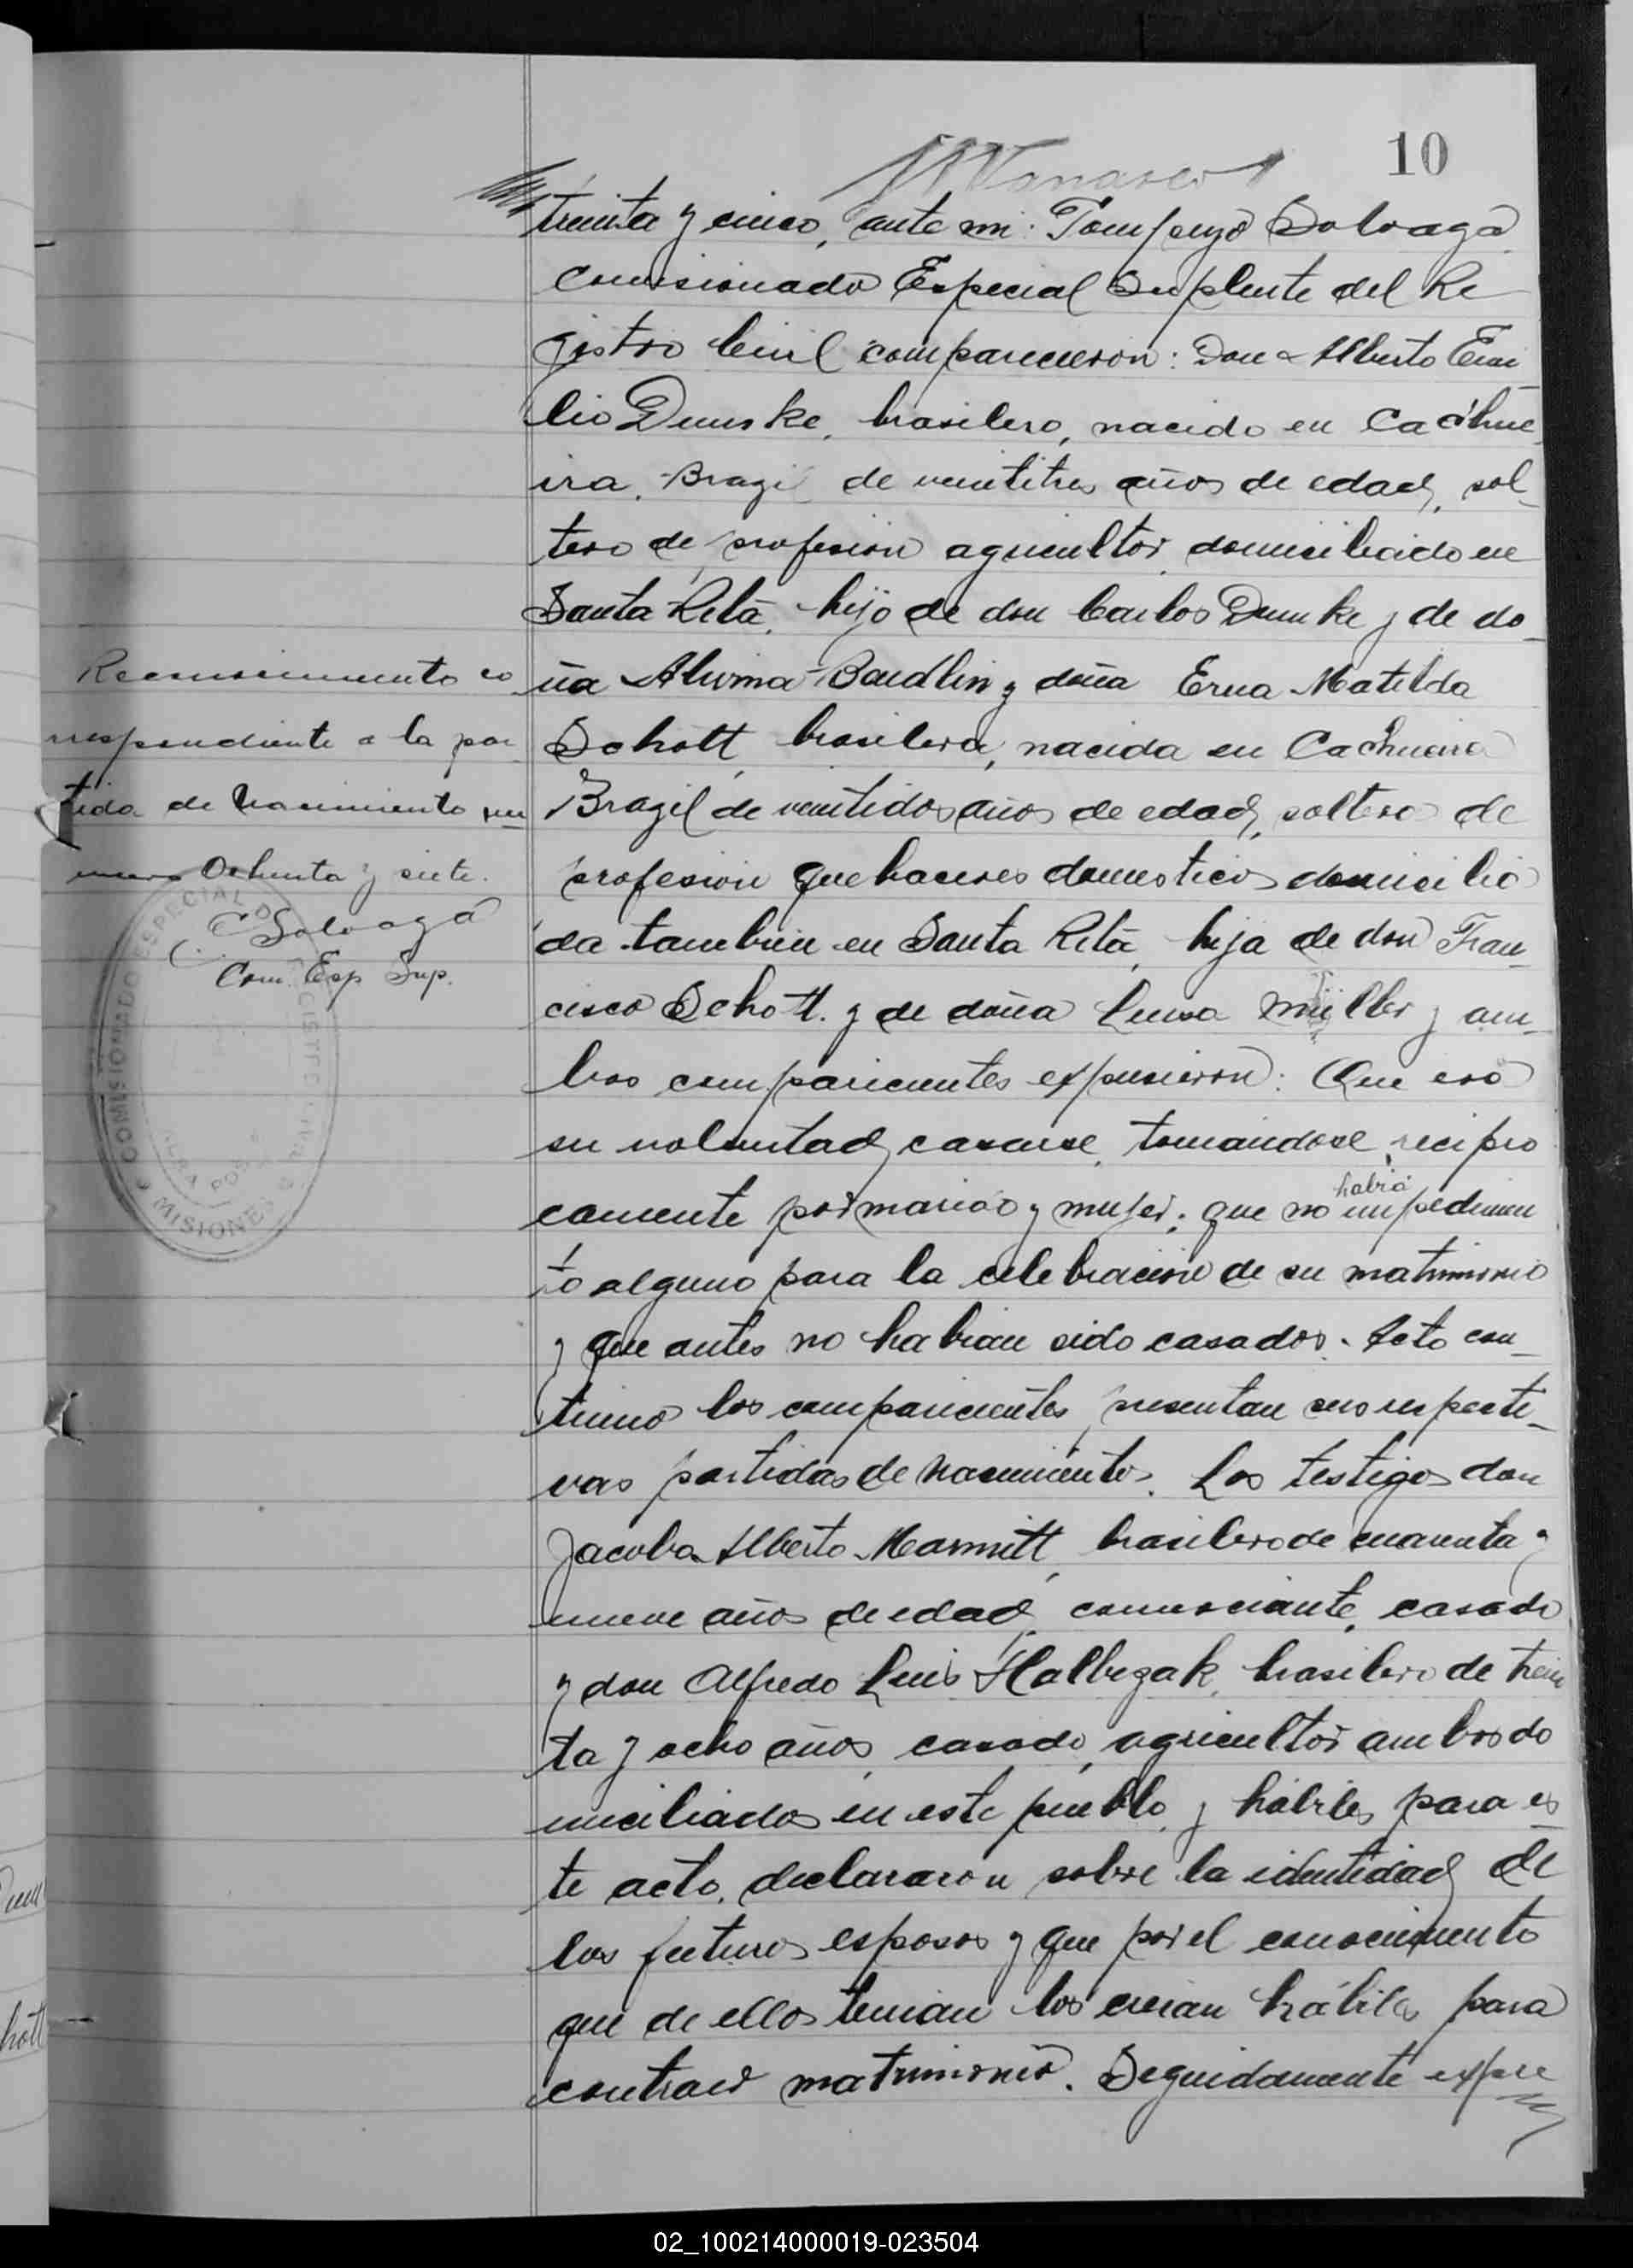 10
treinta y cinco, ante mi: Pompeyo Solvaga
Comisionado Especial Suplente del Re
gistro Civil comparecieron: Don Alberto Emi
lio Dumke, brasilero, nacido en Cachue
ira, Brazil de veintitres años de edad, sol-
tero de profesion agricultor, domiciliado en
Santa Rita, hijo de don Carlos Dumke y de do-
ña Alvina y doña Erna Matilda
Schott, brasilera, nacida en Cachueira
Brazil de veintidos años de edad, soltera de
profesion quehaceres domesticos domicilia
da tambien en Santa Rita, hija de don Fran-
cisco Schott. y de doña Luisa Müller y am-
bos comparecientes expusieron: Que era
su voluntad casarse, tomandose recipro
camente por marido y mujer; que no había impedimen
to alguno para la celebracion de su matrimonio
y que antes no habian sido casados. Acto con-
tinuo los comparecientes presentan sus respecti-
vas partidas de nacimiento. Los testigos don
Jacobo Alberto Marmitt, brasilero de cuarenta y
nueve años de edad, comerciante, casado
y don Alfredo Luis brasilero de trein
ta y ocho años, casado, agricultor ambos do
miciliados en este pueblo, y hábiles para es-
te acto, declararon sobre la identidad de
los futuros esposos y que por el conocimiento
que de ellos tenian los creian hábiles para
contraer matrimonio. Seguidamente expre
Reconocimiento co
rrespondiente a la par-
tida de nacimiento nu-
mero Ochenta y siete.
Solvaga
Com. Esp. Sup.
COMISIONADO ESPECIAL DEL REGISTRO CIVIL
MISIONES
Dum
hott
02_100214000019-023504